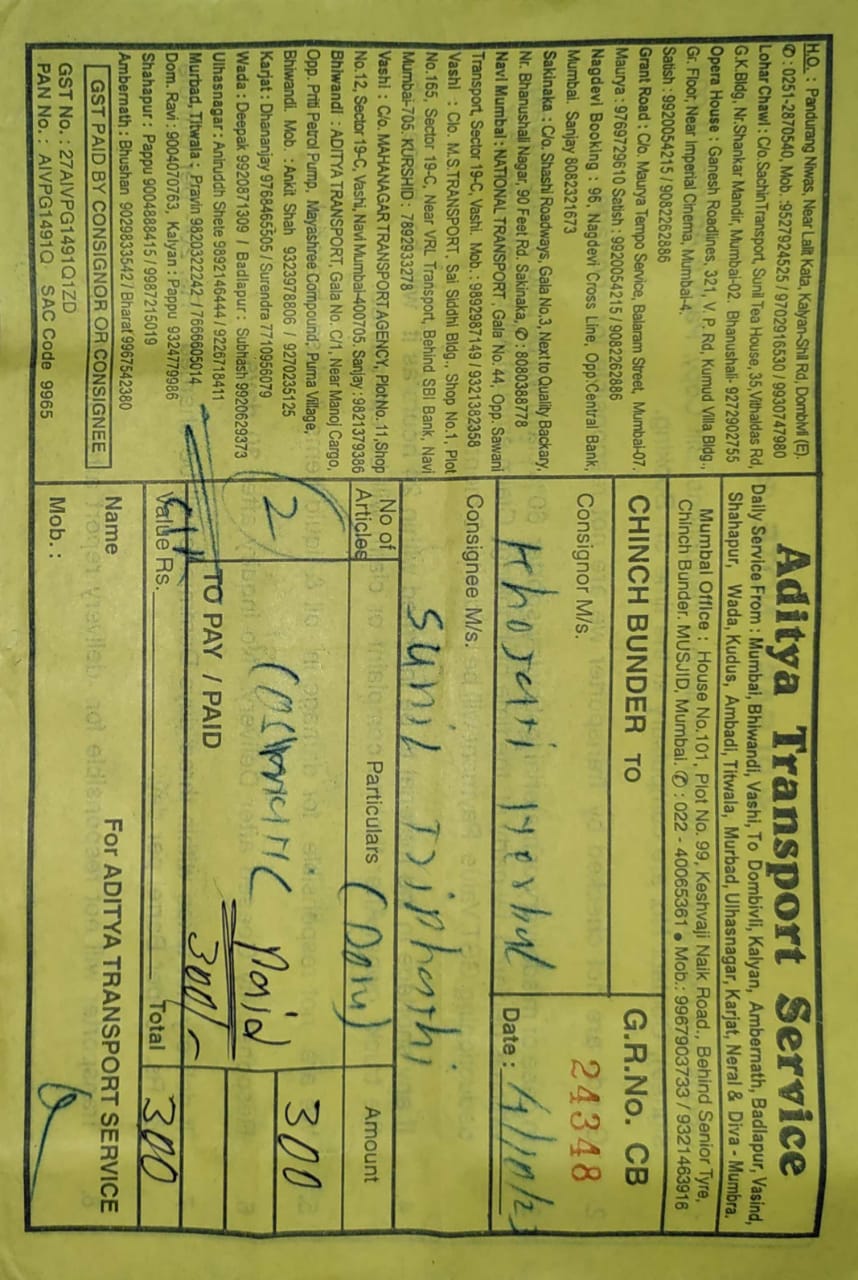 Aditya Transport Service
Daily Service From : Mumbai, Bhiwandi, Vashi, To Dombivli, Kalyan, Ambernath, Badlapur, Vasind,
Shahapur, Wada, Kudus, Ambadi, Titwala, Murbad, Ulhasnagar, Karjat, Neral & Diva - Mumbra.
Mumbai Office : House No.101, Plot No. 99, Keshvaji Naik Road., Behind Senior Tyre,
Chinch Bunder. MUSJID, Mumbai. ✆ : 022 - 40065361 ● Mob.: 9967903733 / 9321463916
CHINCH BUNDER TO
G.R.No. CB
24348
Consignor M/s.
Date :
Consignee M/s.
Sunil
No of Articles
Particulars
Amount
2
300
Paid
300/-
TO PAY / PAID
Value Rs.
Total
300
Name
For ADITYA TRANSPORT SERVICE
Mob. :
H.O. : Pandurang Niwas, Near Lalit Kata, Kalyan-Shil Rd, Dombivli (E).
✆ : 0251-2870540, Mob. :9527924525 / 9702916530 / 9930747980
Lohar Chawl : C/o.SachinTransport, Sunil Tea House, 35,Vithaldas Rd,
G.K.Bldg, Nr.Shankar Mandir, Mumbai-02. Bhanushali- 9272902755
Opera House : Ganesh Roadlines, 321, V. P. Rd, Kumud Villa Bldg.,
Gr. Floor, Near Imperial Cinema, Mumbai-4.
Satish : 9920054215 / 9082262886
Grant Road : C/o. Maurya Tempo Service, Balaram Street, Mumbai-07.
Maurya : 9769729610 Satish : 9920054215 / 9082262886
Nagdevi Booking : 96, Nagdevi Cross Line, Opp.Central Bank,
Mumbai. Sanjay 8082321673
Sakinaka : C/o. Shashi Roadways, Gala No.3, Next to Quality Backary,
Nr. Bhanushali Nagar, 90 Feet Rd. Sakinaka, ✆ : 8080388778
Navi Mumbai : NATIONAL TRANSPORT. Gala No. 44, Opp. Sawani
Transport, Sector 19-C, Vashi. Mob. : 9892987149 / 9321382358
Vashi : C/o. M.S.TRANSPORT, Sai Siddhi Bldg., Shop No.1, Plot
No.165, Sector 19-C, Near VRL Transport, Behind SBI Bank, Navi
Mumbai-705. KURSHID : 7892933278
Vashi : C/o. MAHANAGAR TRANSPORT AGENCY, Plot No. 11,Shop
No.12, Sector 19-C, Vashi, Navi Mumbai-400705, Sanjay :9821379386
Bhiwandi : ADITYA TRANSPORT, Gala No. C/1, Near Manoj Cargo,
Opp. Priti Petrol Pump, Mayashree Compound, Purna Village,
Bhiwandi. Mob. : Ankit Shah 9323978806 / 9270235125
Karjat : Dhananjay 9768465505 / Surendra 7710956079
Wada : Deepak 9920871309 / Badlapur : Subhash 9920629373
Ulhasnagar : Aniruddh Shete 9892146444 / 9226718411
Murbad, Titwala : Pravin 9820322242 / 7666605014
Dom. Ravi : 9004070763, Kalyan : Pappu 9324779986
Shahapur : Pappu 9004888415 / 9987215019
Ambernath : Bhushan 9029833542 / Bharat 9967542380
GST PAID BY CONSIGNOR OR CONSIGNEE
GST No. : 27AIVPG1491Q1ZD
PAN No. : AIVPG1491Q SAC Code 9965